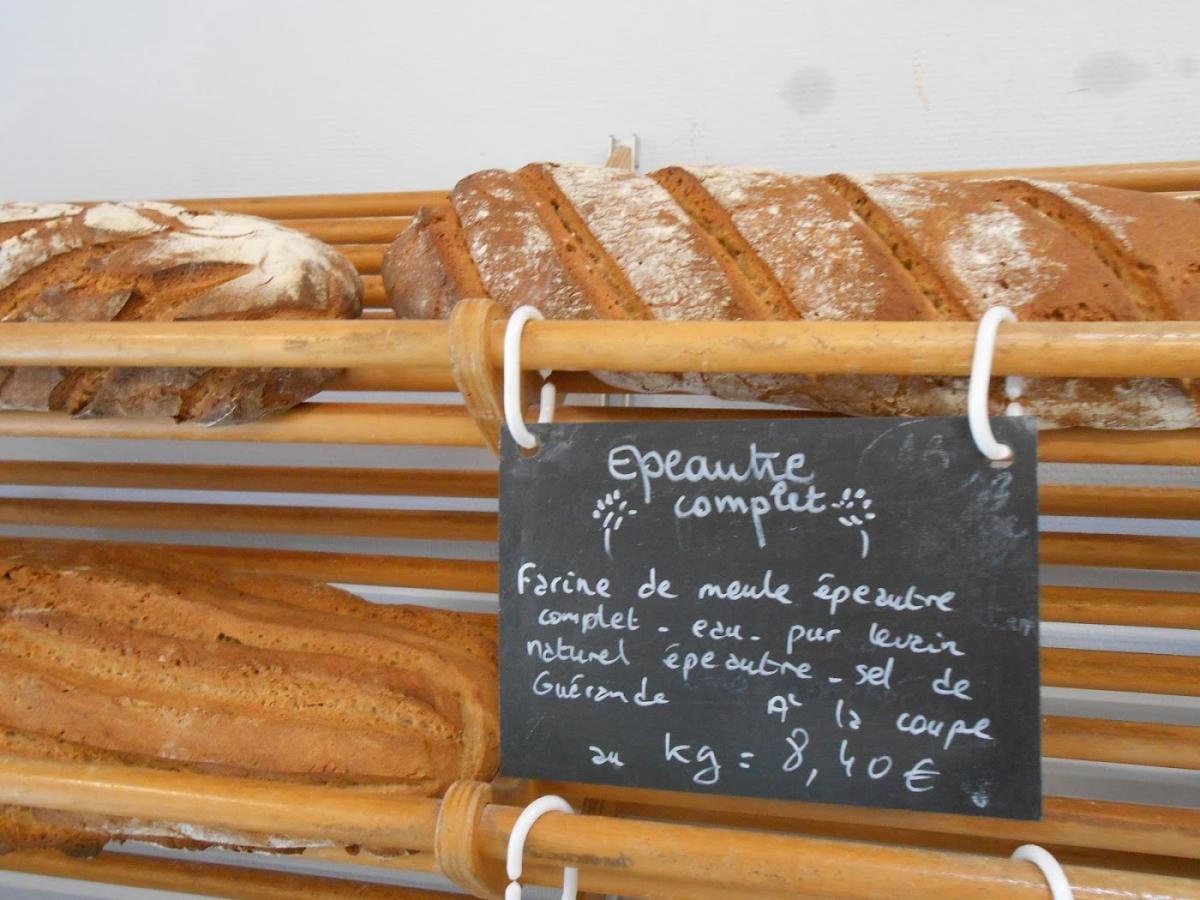 Epeautre
complet
Farine de meule épeautre
complet - eau - pur levain
naturel épeautre - sel de
Guérande À la coupe
au kg = 8,40 €